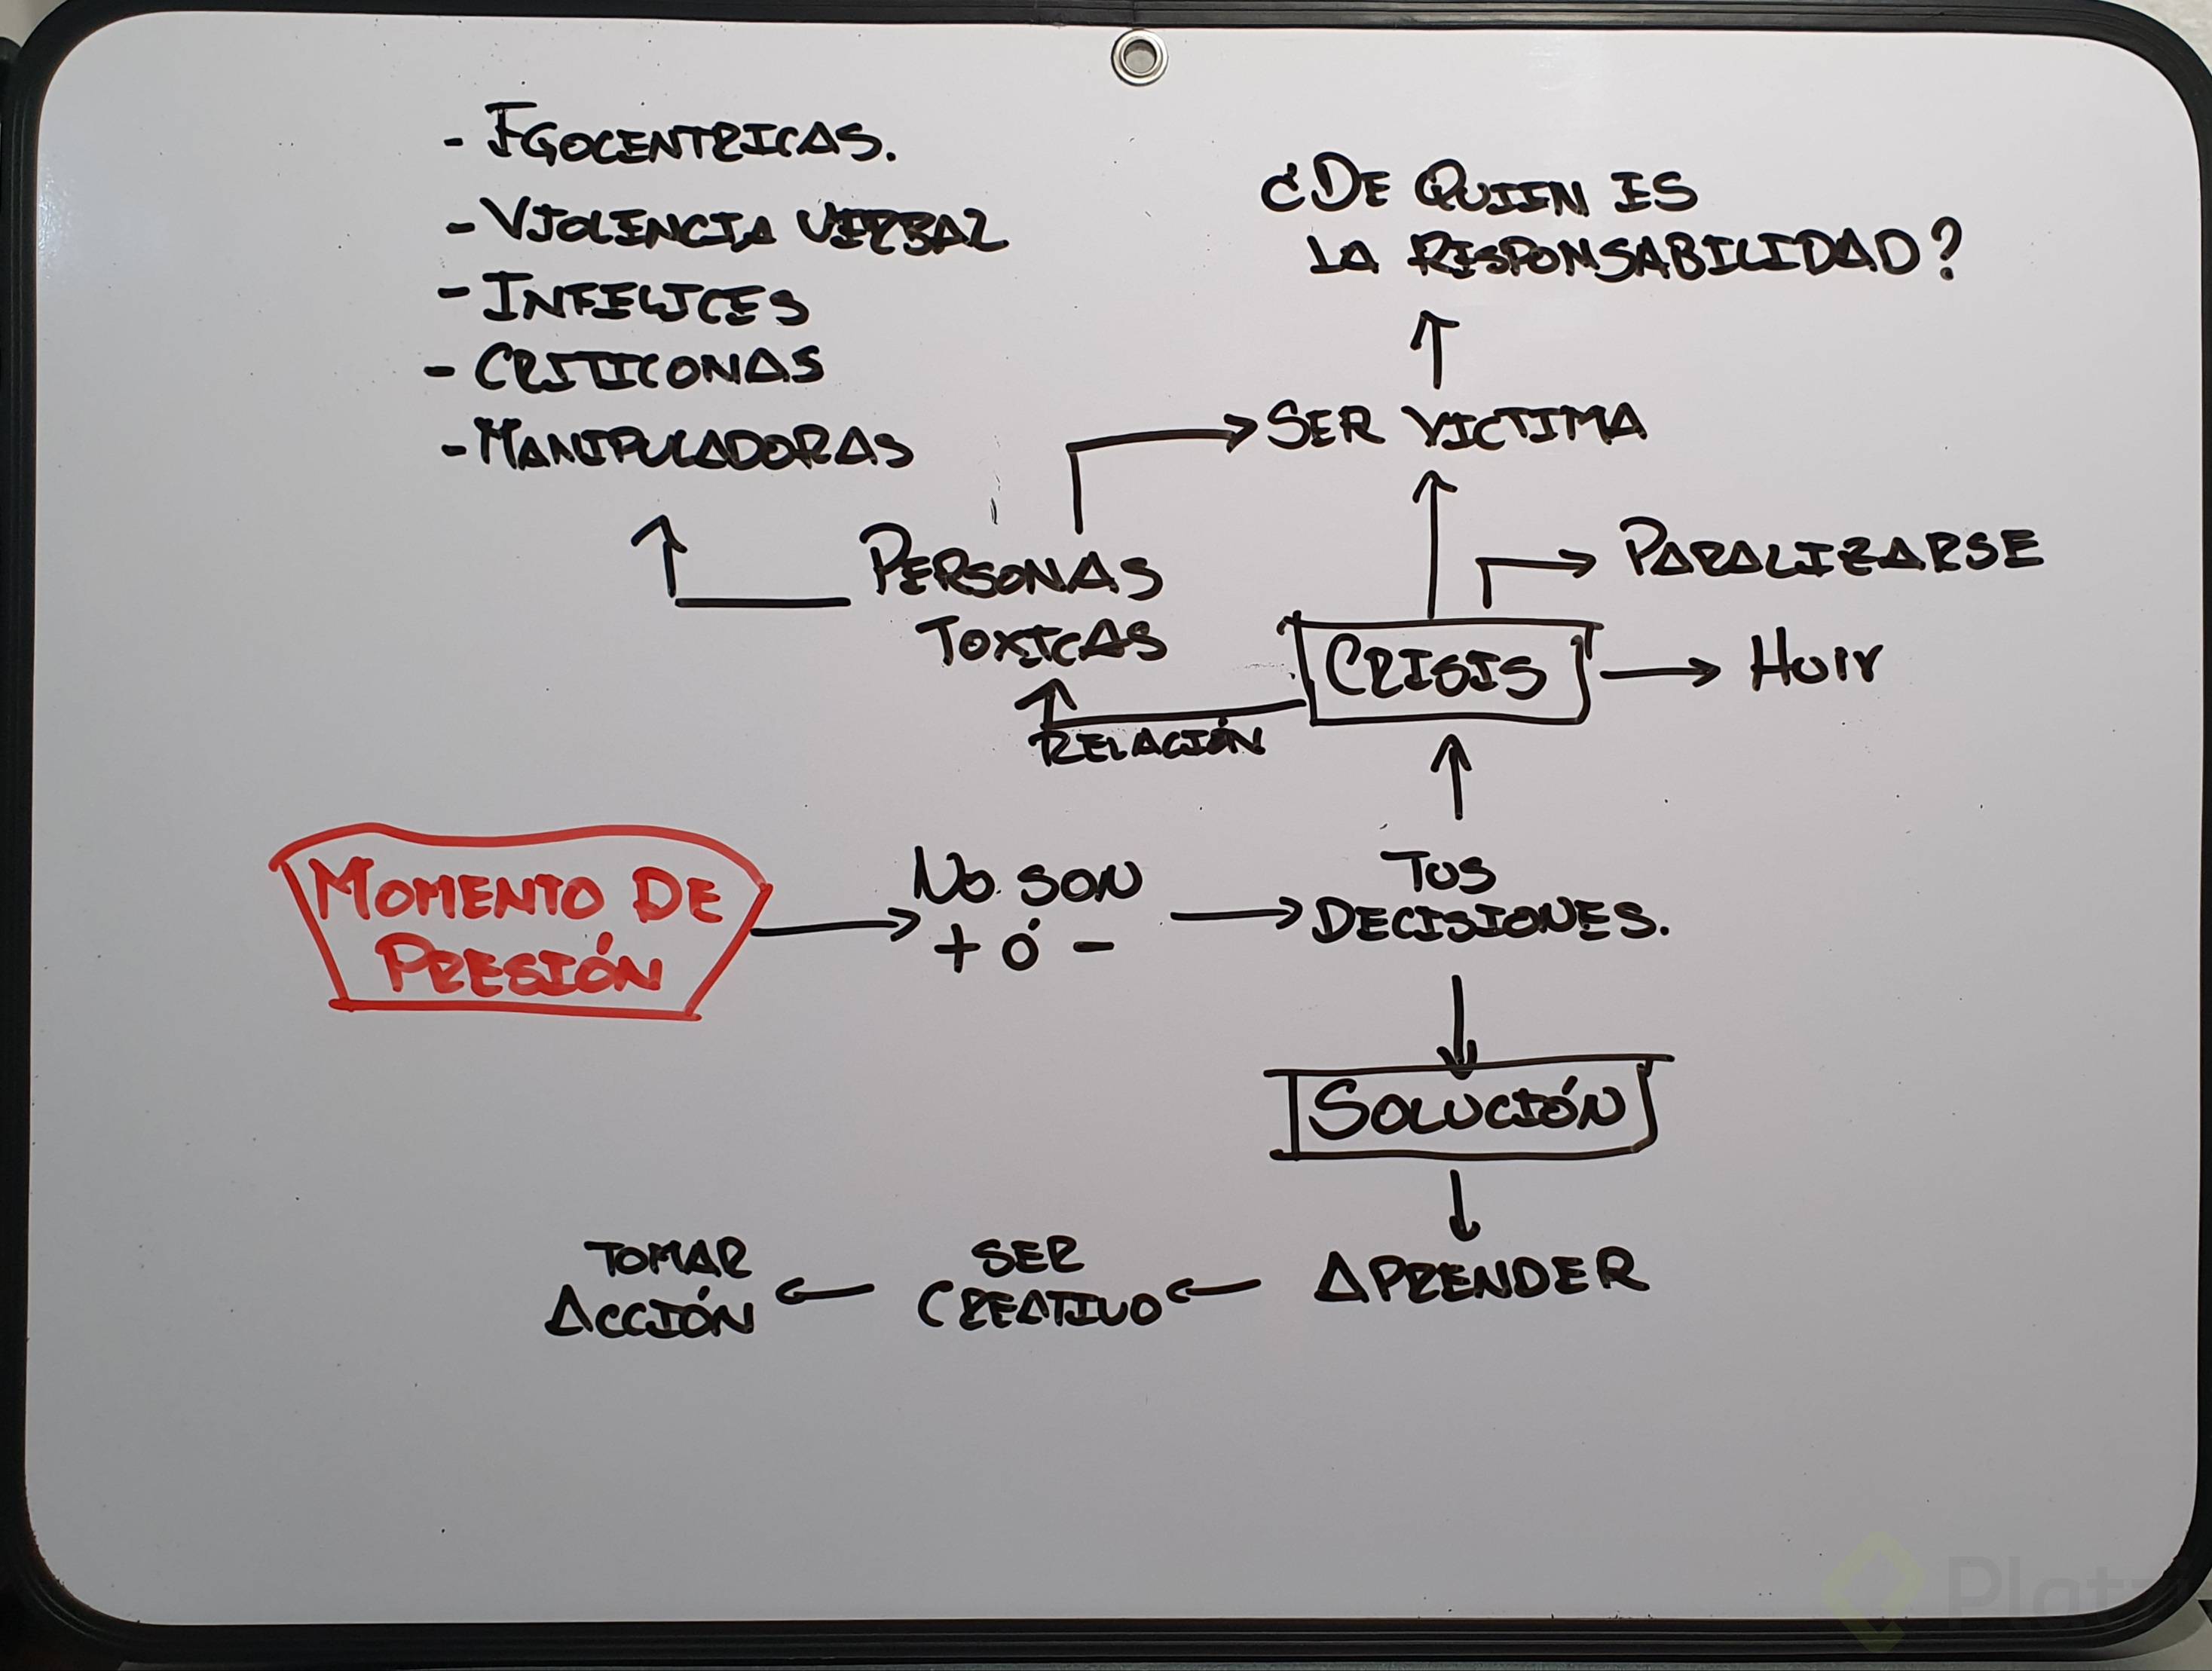 - EGOCENTRICAS.
- VIOLENCIA VERBAL
- INFELICES
- CRITICONAS
- MANIPULADORAS
¿DE QUIEN ES
LA RESPONSABILIDAD?
SER VICTIMA
PERSONAS
TOXICAS
PARALIZARSE
CRISIS
HUIR
RELACIÓN
MOMENTO DE
PRESIÓN
NO SON
+ Ó -
TUS
DECISIONES.
SOLUCIÓN
APRENDER
SER
CREATIVO
TOMAR
ACCIÓN